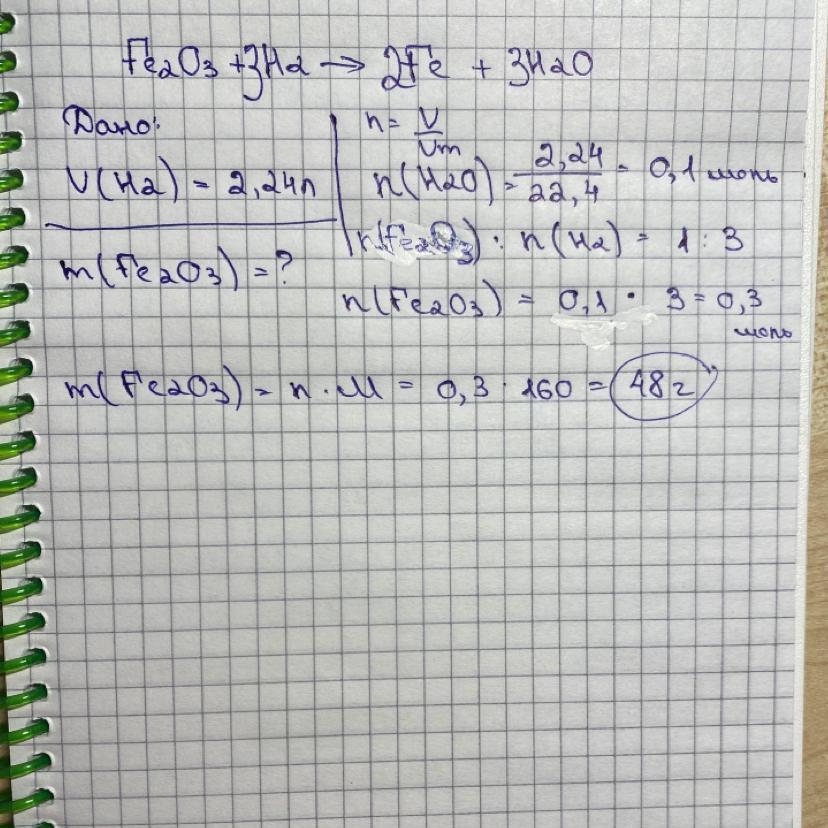 Fe2O3 + 3H2 → 2Fe + 3H2O
Дано:
V(H2) = 2,24л
m(Fe2O3) = ?
n = V/Vm
n(H2O) = 2,24/22,4 = 0,1 моль
n(Fe2O3) : n(H2) = 1 : 3
n(Fe2O3) = 0,1 · 3 = 0,3
моль
m(Fe2O3) = n · M = 0,3 · 160 = 48г